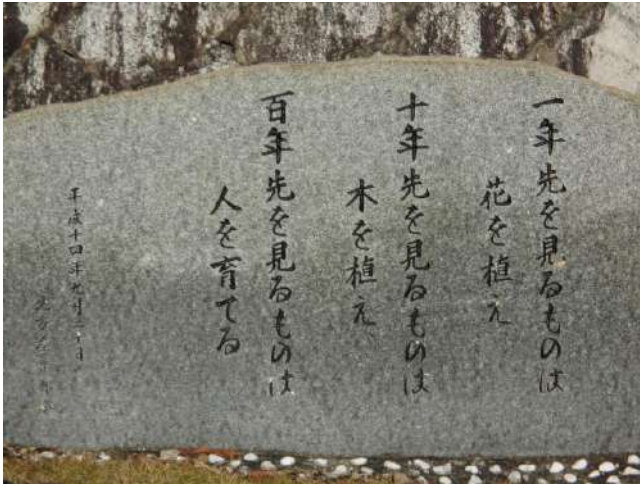 一年先を見るものは
花を植え
十年先を見るものは
木を植え
百年先を見るものは
人を育てる
平成十四年九月